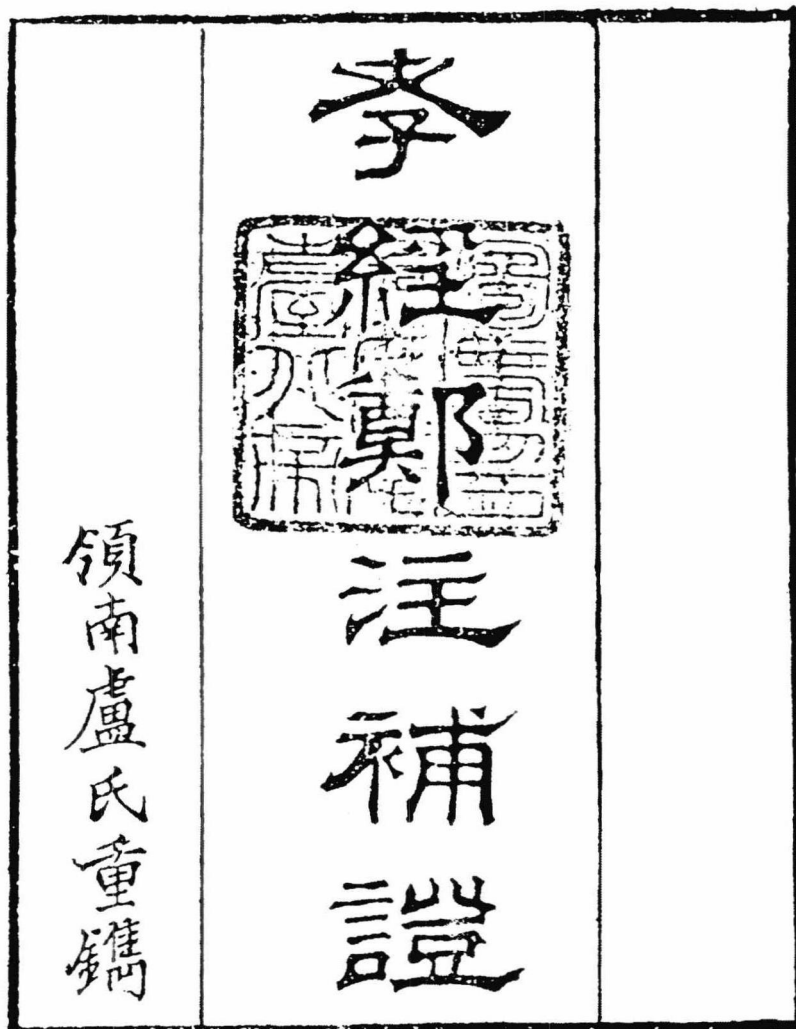 孝經鄭注補證
領南盧氏重鐫